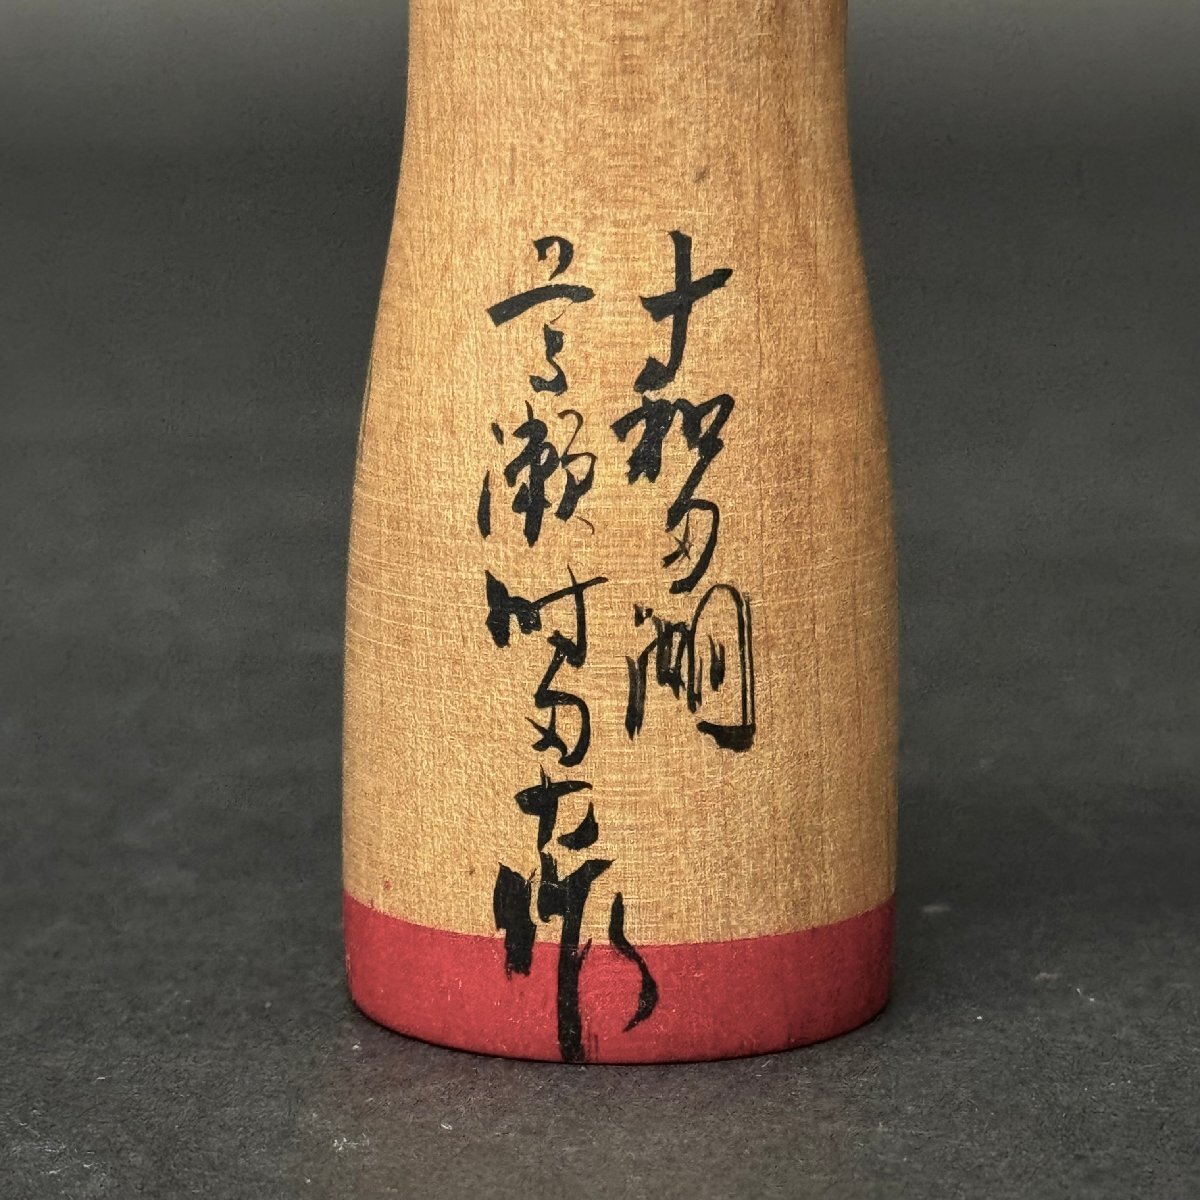 十和田湖
高瀬時男作